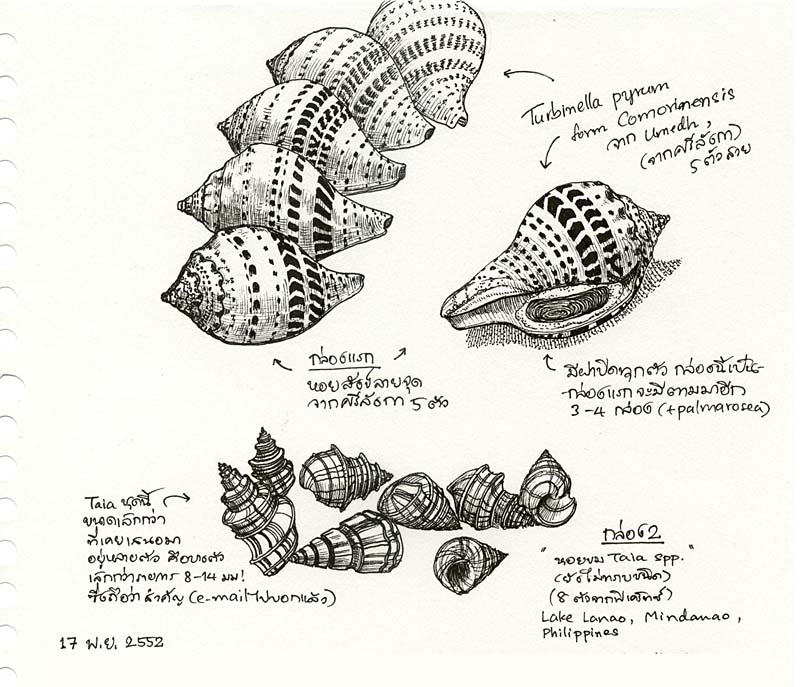 Turbinella pyrum
form Comorinensis
จาก Umedh,
(จากศรีลังกา)
5 ตัวลาย
กล่องแรก
หอยสังข์ลายจุด
จากศรีลังกา 5 ตัว
มีฝาปิดทุกตัว กล่องนี้เป็น
กล่องแรกจะมีตามมาอีก
3-4 กล่อง (+palmarosea)
Taia ชุดนี้
ขนาดเล็กกว่า
ที่เคยเสนอมา
อยู่หลายตัว คือบางตัว
เล็กกว่า 8-14 มม!
ซึ่งถือว่าสำคัญ (e-mail ไปบอกแล้ว)
กล่อง 2
"หอยขม Taia spp."
(ยังไม่ทราบชนิด)
(8 ตัวจากฟิลิปปินส์)
Lake Lanao, Mindanao,
Philippines
17 พ.ย. 2552